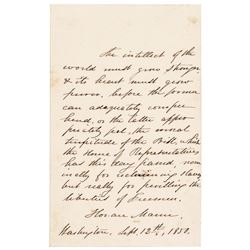 the intellect of the
world must grow stronger,
& its heart must grow
purer, before the former
can adequately compre
hend, or the latter appro
priately feel, the moral
turpitude of the Bill, which
the House of Representatives
has this day passed, nom
inally for reclaiming slaves
but really for periling the
liberties of Freemen.
Horace Mann.
Washington, Sept. 12th, 1850.